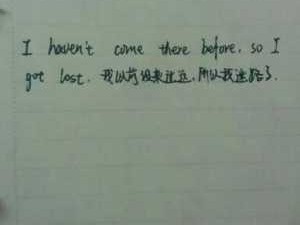 I haven't come there before, so I
got lost. 我以前没来过这,所以我迷路了.